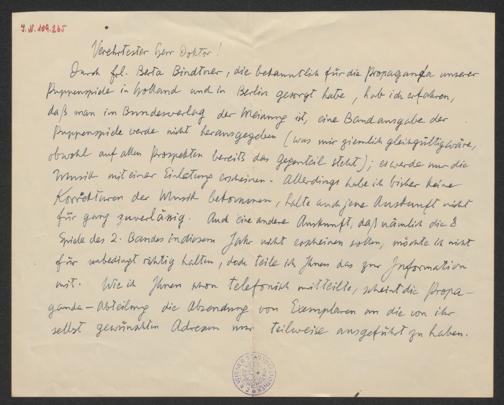 J.N. 109.265
Verehrtester Herr Doktor!
Durch frl. Berta Bindtner, die bekanntlich für die Propaganda unserer
Puppenspiele in Holland und in Berlin gesorgt habe, hab ich erfahren,
daß man im Bundesverlag der Meinung ist, eine Bandausgabe der
Puppenspiele werde nicht herausgegeben (was mir ziemlich gleichgültig wäre,
obwohl auf allen Prospekten bereits das Gegenteil steht); es werde nur die
Musik mit einer Einleitung erscheinen. Allerdings habe ich bisher keine
Korrekturen der Musik bekommen, halte auch jene Auskunft nicht
für ganz zuverlässig. Auch eine andere Auskunft, daß nämlich die 8
Spiele des 2. Bandes in diesem Jahr nicht erscheinen sollen, möchte ich nicht
für unbedingt richtig halten, doch teile ich Ihnen das zur Information
mit. Wie ich Ihnen schon telefonisch mitteilte, scheint die Propa-
ganda-Abteilung die Absendung von Exemplaren an die von ihr
selbst gewünschten Adressen nur teilweise ausgeführt zu haben.